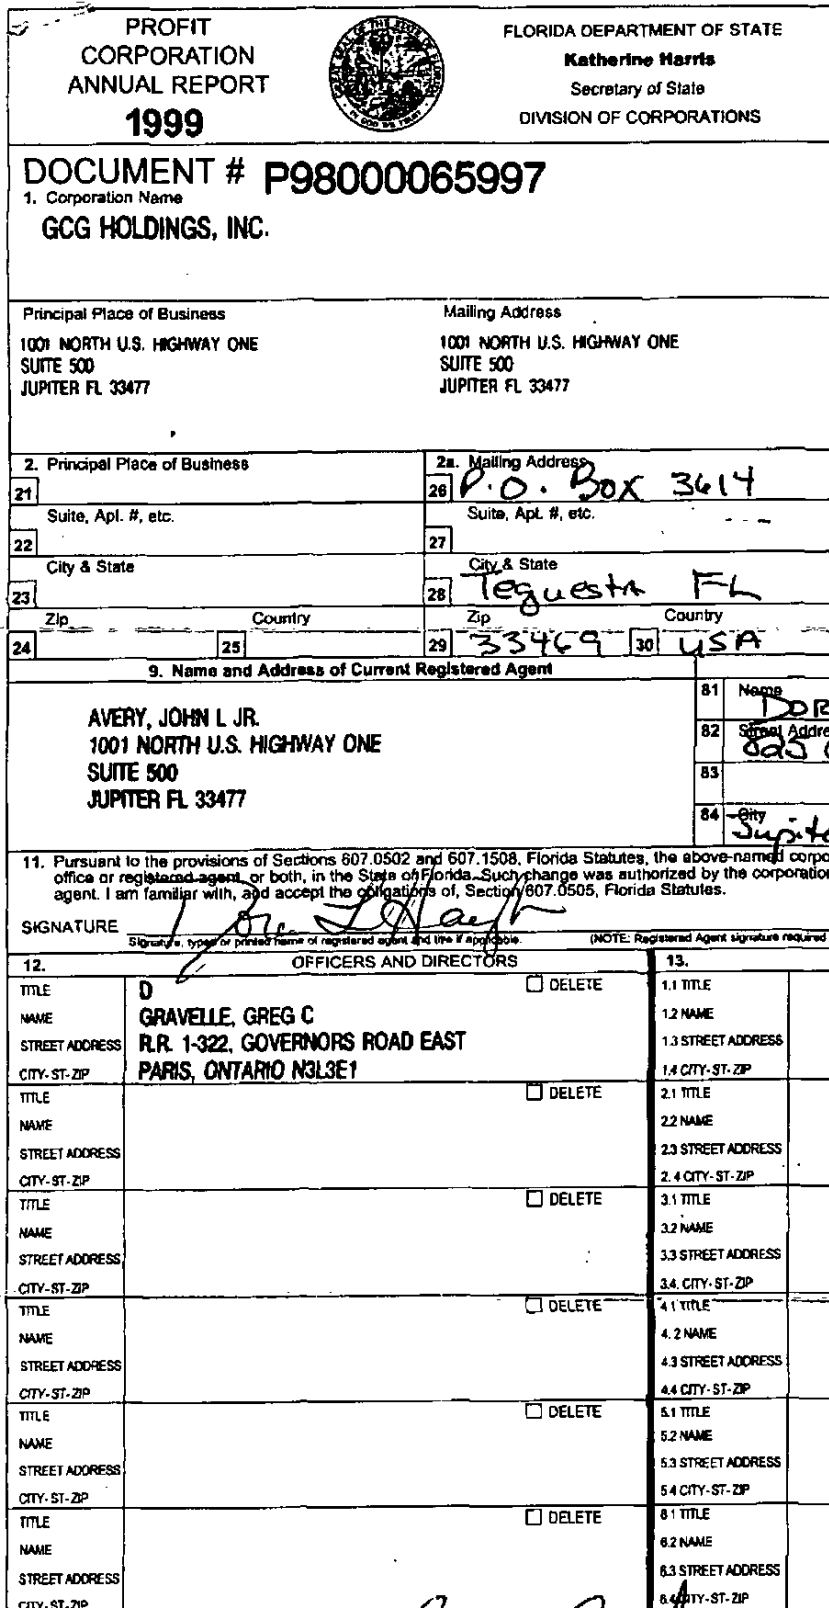 PROFIT
CORPORATION
ANNUAL REPORT
1999
FLORIDA DEPARTMENT OF STATE
Katherine Harris
Secretary of State
DIVISION OF CORPORATIONS
DOCUMENT # P98000065997
1. Corporation Name
GCG HOLDINGS, INC.
Principal Place of Business
Mailing Address
1001 NORTH U.S. HIGHWAY ONE
SUITE 500
JUPITER FL 33477
1001 NORTH U.S. HIGHWAY ONE
SUITE 500
JUPITER FL 33477
2. Principal Place of Business
2a. Mailing Address
21
26 P.O. Box 3614
Suite, Apt. #, etc.
Suite, Apt. #, etc.
22
27
City & State
City & State
23
28 Tequesta FL
Zip
Country
Zip
Country
24
25
29 33469
30 USA
9. Name and Address of Current Registered Agent
AVERY, JOHN L JR.
1001 NORTH U.S. HIGHWAY ONE
SUITE 500
JUPITER FL 33477
81 Name
DOR
82 Street Addre
825
83
84 City
Jupite
11. Pursuant to the provisions of Sections 607.0502 and 607.1508, Florida Statutes, the above-named corpo
office or registered agent, or both, in the State of Florida. Such change was authorized by the corporation
agent. I am familiar with, and accept the obligations of, Section 607.0505, Florida Statutes.
SIGNATURE
Signature, typed or printed name of registered agent and title if applicable.
(NOTE: Registered Agent signature required
12. OFFICERS AND DIRECTORS
13.
TITLE D DELETE
NAME GRAVELLE, GREG C
STREET ADDRESS R.R. 1-322, GOVERNORS ROAD EAST
CITY-ST-ZIP PARIS, ONTARIO N3L3E1
1.1 TITLE
1.2 NAME
1.3 STREET ADDRESS
1.4 CITY-ST-ZIP
TITLE DELETE
NAME
STREET ADDRESS
CITY-ST-ZIP
2.1 TITLE
2.2 NAME
2.3 STREET ADDRESS
2.4 CITY-ST-ZIP
TITLE DELETE
NAME
STREET ADDRESS
CITY-ST-ZIP
3.1 TITLE
3.2 NAME
3.3 STREET ADDRESS
3.4. CITY-ST-ZIP
TITLE DELETE
NAME
STREET ADDRESS
CITY-ST-ZIP
4.1 TITLE
4.2 NAME
4.3 STREET ADDRESS
4.4 CITY-ST-ZIP
TITLE DELETE
NAME
STREET ADDRESS
CITY-ST-ZIP
5.1 TITLE
5.2 NAME
5.3 STREET ADDRESS
5.4 CITY-ST-ZIP
TITLE DELETE
NAME
STREET ADDRESS
CITY-ST-ZIP
6.1 TITLE
6.2 NAME
6.3 STREET ADDRESS
6.4 CITY-ST-ZIP